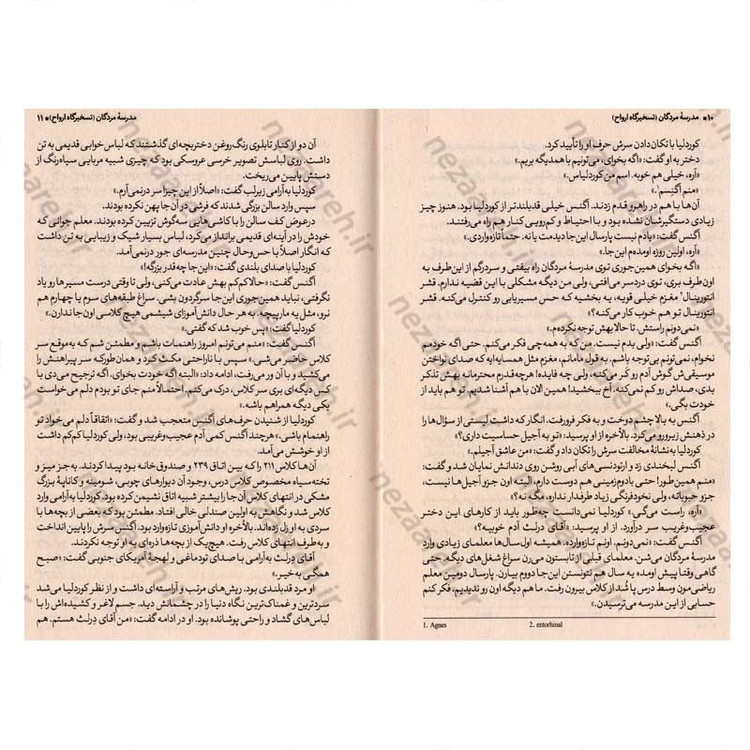 ۱۰ مدرسهٔ مردگان (تسخیرگاه ارواح)
کوردلیا با تکان دادن سرش حرف او را تأیید کرد.
دختر به او گفت: «اگه بخوای، می‌تونیم با همدیگه بریم.»
«آره، خیلی هم خوبه. اسم من کوردلیاس.»
«منم اَگنِسم¹.»
آن‌ها با هم در راهرو قدم زدند. اَگنس خیلی قدبلندتر از کوردلیا بود. هنوز چیز
زیادی دستگیرشان نشده بود و با احتیاط و کم‌رویی کنار هم راه می‌رفتند.
اَگنس گفت: «یادم نیست پارسال این‌جا دیدمت یا نه. حتماً تازه‌واردی.»
«آره، اولین روزه اومده‌م این‌جا.»
«اگه بخوای همین‌جوری توی مدرسهٔ مردگان راه بیفتی و سردرگم از این‌طرف به
اون‌طرف بری، توی دردسر می‌افتی، ولی من دیگه مشکلی با این قضیه ندارم. قشر
انتورینال² مغزم خیلی قویه، یه بخشیه که حس مسیریابی رو کنترل می‌کنه. قشر
انتورینال تو هم خوب کار می‌کنه؟»
«نمی‌دونم راستش. تا حالا بهش توجه نکرده‌م.»
اَگنس گفت: «ولی بدم نیست. من که به همه‌چی فکر می‌کنم. حتی اگه خودم
نخوام، نمی‌تونم بی‌توجه باشم. به قول مامانم، مغزم مثل همسایه‌ایه که صدای نواختن
موسیقی‌ش گوش آدم رو کَر می‌کنه. ولی چه فایده! هرچه‌قدرم محترمانه بهش تلنگر
بدی، صداش رو کم نمی‌کنه. آخ ببخشید! همین الان با هم آشنا شدیم. تو هم باید از
خودت بگی.»
اَگنس به بالا چشم دوخت و به فکر فرورفت. انگار که داشت لیستی از سؤال‌ها را
در ذهنش زیرورو می‌کرد. بالأخره از او پرسید: «تو به آجیل حساسیت داری؟»
کوردلیا به نشانهٔ مخالفت سرش را تکان داد و گفت: «من عاشق آجیلم.»
اَگنس لبخندی زد و ارتودنسی‌های آبی روشن روی دندانش نمایان شد و گفت:
«منم همین‌طور! حتی بادوم‌زمینی هم دوست دارم، البته اون جزو آجیل‌ها نیست،
جزو حبوباته، ولی نخودفرنگی زیاد طرفدار نداره، مگه نه؟»
«آره، راست می‌گی.» کوردلیا نمی‌دانست چه‌طور باید از کارهای این دختر
عجیب‌وغریب سر درآورد. از او پرسید: «آقای دِرلِث آدم خوبیه؟»
اَگنس گفت: «نمی‌دونم. اونم تازه‌وارده. همیشه اول سال‌ها معلمای زیادی وارد
مدرسهٔ مردگان می‌شن. معلمای قبلی از تابستون می‌رن سراغ شغل‌های دیگه. حتی
گاهی وقتا پیش اومده یه سال هم نتونستن این‌جا دووم بیارن. پارسال دومین معلم
ریاضی‌مون وسط درس پا شد از کلاس بیرون رفت. ما هم دیگه اون رو ندیدیم. فکر کنم
حسابی از این مدرسه می‌ترسیدن.»
1. Agnes 2. entorhinal
مدرسهٔ مردگان (تسخیرگاه ارواح) ۱۱
آن دو از کنار تابلوی رنگ‌روغن دختربچه‌ای گذشتند که لباس‌خوابی قدیمی به تن
داشت. روی لباسش تصویر خرسی عروسکی بود که چیزی شبیه مربایی سیاه‌رنگ از
دستش پایین می‌ریخت.
کوردلیا به‌آرامی زیرلب گفت: «اصلاً از این چیزا سر درنمی‌آرم.»
سپس وارد سالن بزرگی شدند که فرشی در آن‌جا پهن نکرده بودند.
در عوض کف سالن را با کاشی‌هایی سه‌گوش تزیین کرده بودند. معلم جوانی که
خودش را در آینه‌ای قدیمی برانداز می‌کرد، لباس بسیار شیک و زیبایی به تن داشت
که انگار اصلاً با حس‌وحال چنین مدرسه‌ای جور درنمی‌آمد.
کوردلیا با صدای بلندی گفت: «این‌جا چه‌قدر بزرگه!»
اَگنس گفت: «حالا کم‌کم بهش عادت می‌کنی، ولی تا وقتی درست مسیرها رو یاد
نگرفتی، نباید همین‌جوری این‌جا سرگردون بشی. سراغ طبقه‌های سوم یا چهارم هم
نرو، مثل یه مارپیچه. به هر حال دانش‌آموزای شیشمی هیچ کلاسی اون‌جا ندارن.»
کوردلیا گفت: «پس خوب شد که گفتی.»
اَگنس گفت: «منم می‌تونم امروز راهنمات باشم و مطمئن شم که به‌موقع سر
کلاس حاضر می‌شی.» سپس با ناراحتی مکث کرد و همان‌طور که سر پیراهنش را
می‌کشید و با آن ور می‌رفت، ادامه داد: «البته اگه خودت بخوای. اگه ترجیح می‌دی با
کس دیگه‌ای بری سر کلاس، درک می‌کنم. احتمالاً منم جای تو بودم دلم می‌خواست
یکی دیگه همراهم باشه.»
کوردلیا از شنیدن حرف‌های اَگنس متعجب شد و گفت: «اتفاقاً دلم می‌خواد تو
راهنمام باشی.» هرچند اَگنس کمی آدم عجیب‌وغریبی بود، ولی کوردلیا کم‌کم داشت
از او خوشش می‌آمد.
آن‌ها کلاس ۲۱۱ را که بین اتاق ۲۳۹ و صندوق‌خانه بود پیدا کردند. به‌جز میز و
تخته‌سیاه مخصوص کلاس درس، وجود آن دیوارهای چوبی، شومینه و کاناپهٔ بزرگ
مشکی در انتهای کلاس آن‌جا را بیشتر شبیه اتاق نشیمن کرده بود. کوردلیا به‌آرامی وارد
کلاس شد و نگاهش به اولین صندلی خالی افتاد. مطمئن بود که بعضی از بچه‌ها با
سردی به او زل زده‌اند. بالأخره او دانش‌آموزی تازه‌وارد بود. اَگنس سرش را پایین انداخت
و به‌طرف انتهای کلاس رفت. هیچ‌یک از بچه‌ها ذره‌ای به او توجه نکردند.
آقای دِرلِث به‌آرامی با صدای تودماغی و لهجهٔ آمریکای جنوبی گفت: «صبح
همگی به‌خیر.»
او مرد قدبلندی بود. ریش‌های مرتب و آراسته‌ای داشت و از نظر کوردلیا می‌شد
سردترین و غمناک‌ترین نگاه دنیا را در چشمانش دید. جسم لاغر و کشیده‌اش را با
لباس‌های گشاد و راحتی پوشانده بود. او در ادامه گفت: «من آقای دِرلِث هستم. هم
nezaareh.ir